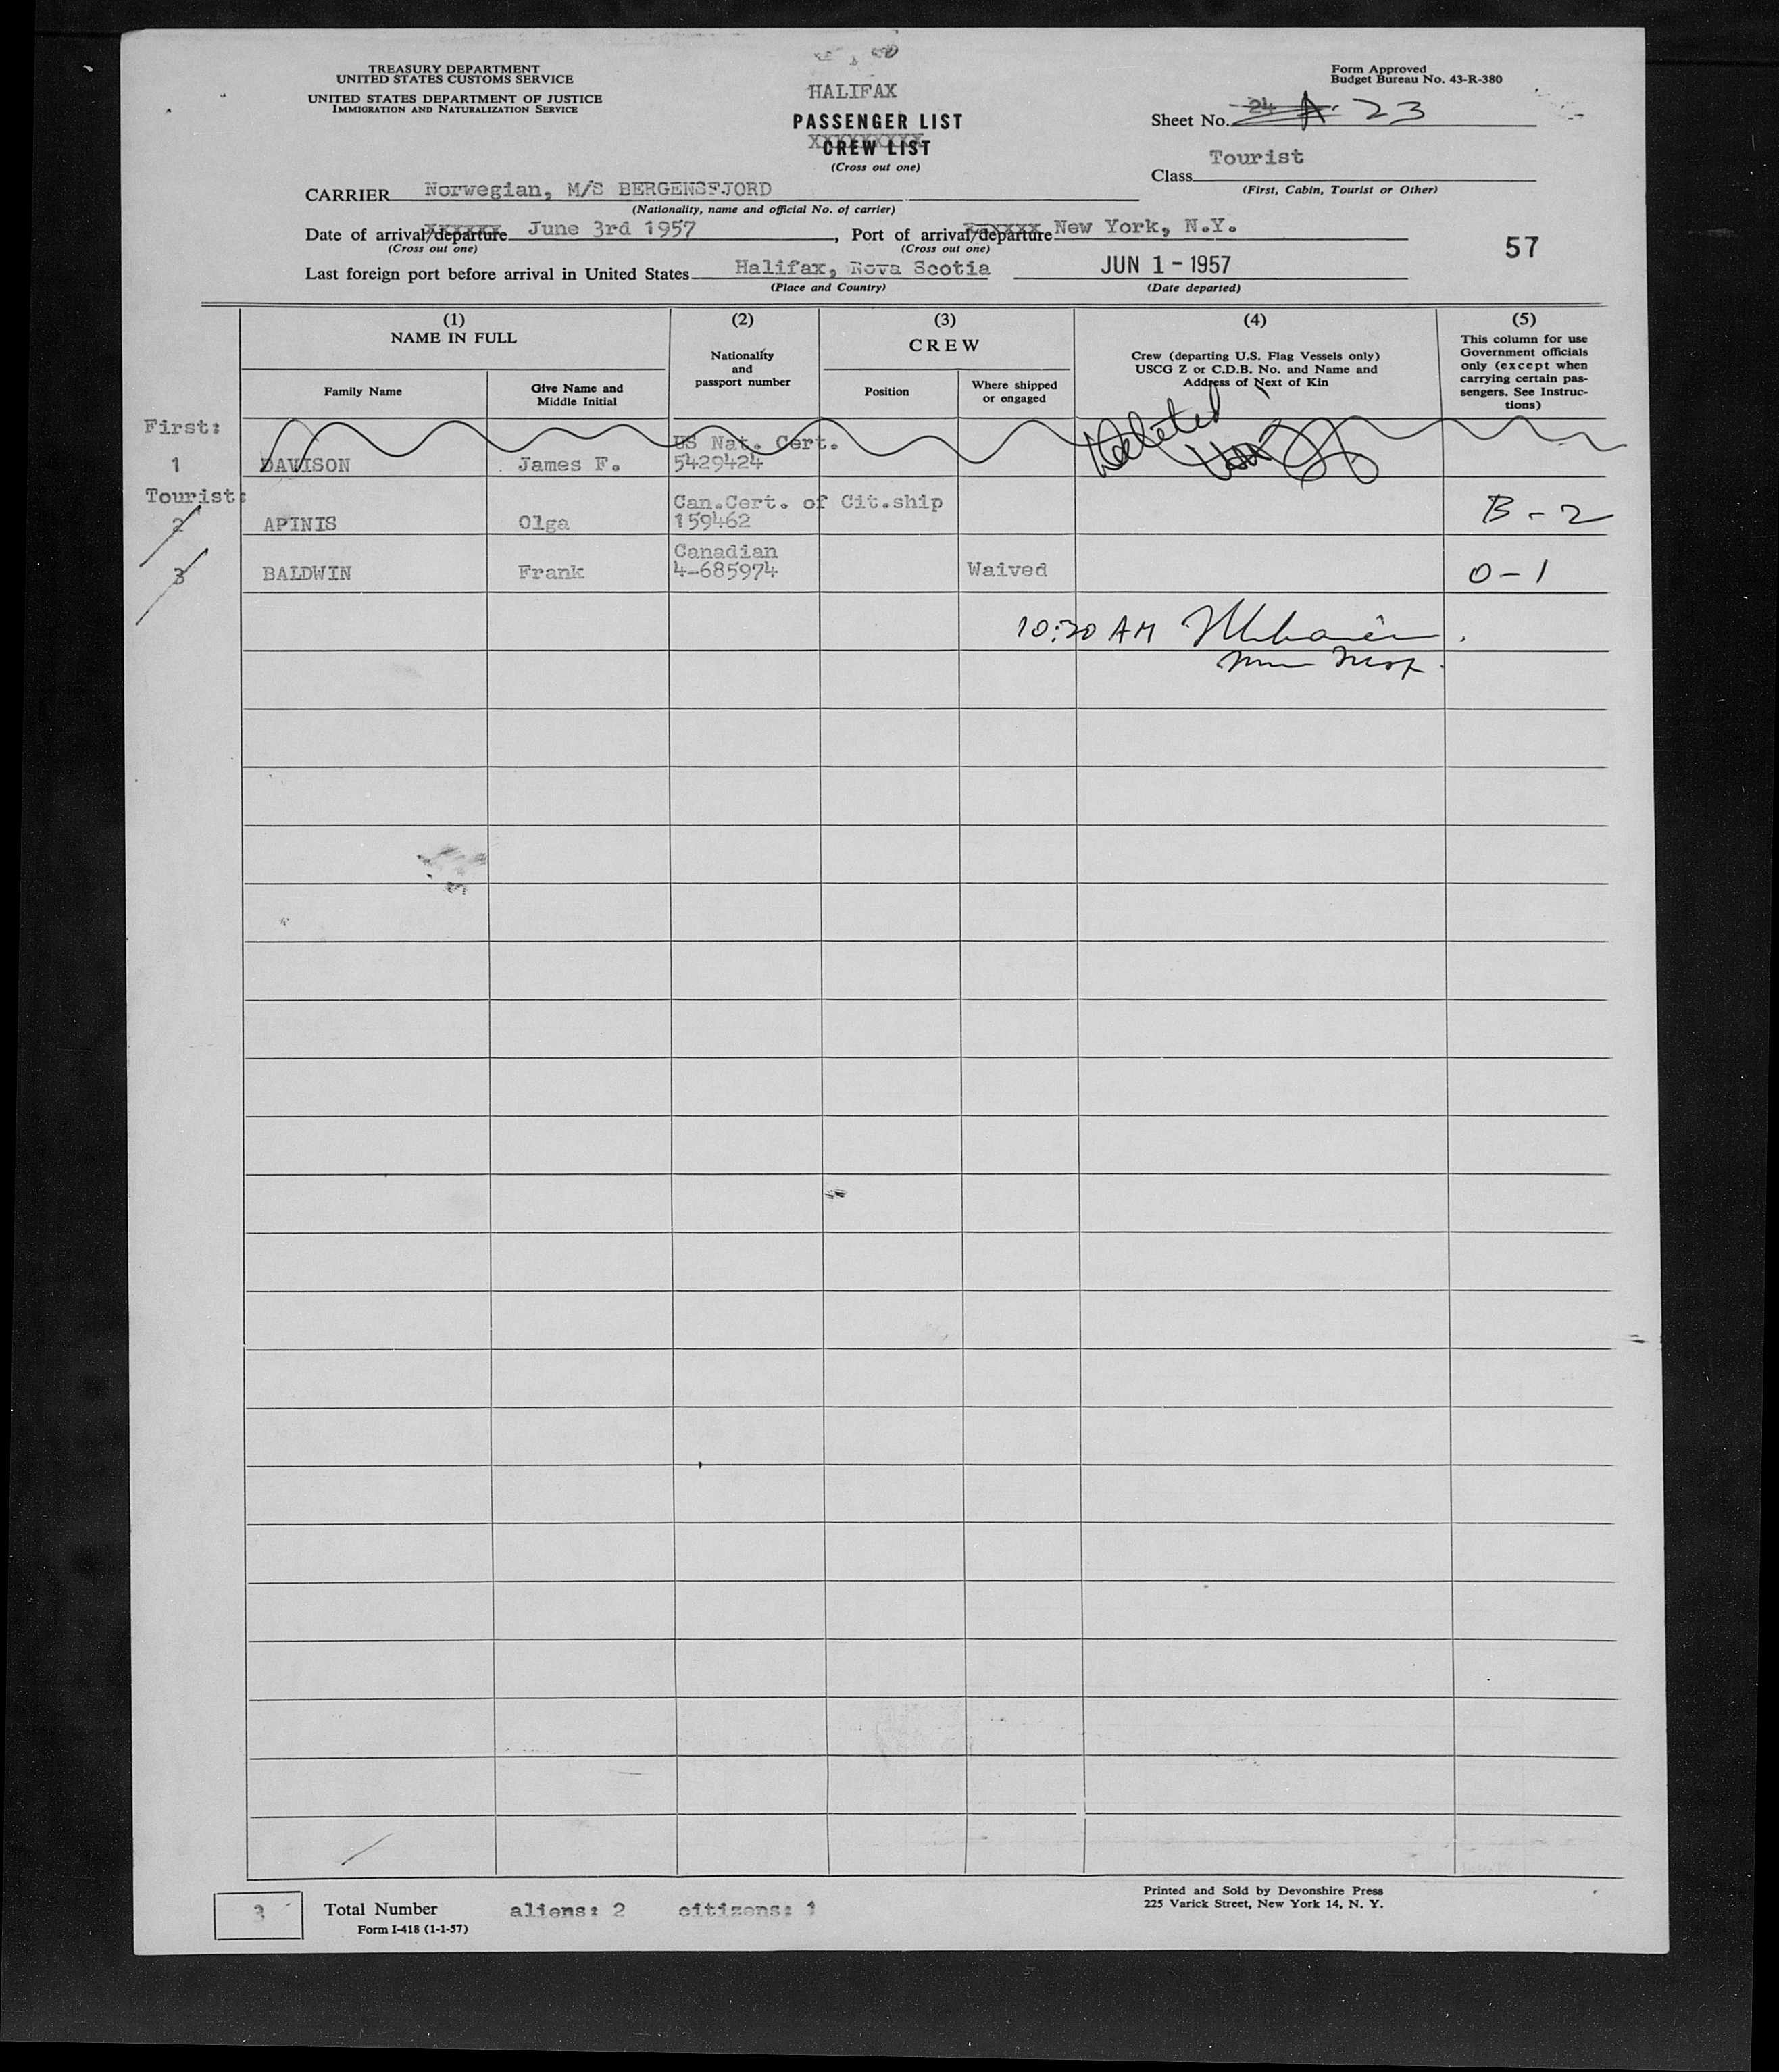 TREASURY DEPARTMENT
UNITED STATES CUSTOMS SERVICE
UNITED STATES DEPARTMENT OF JUSTICE
IMMIGRATION AND NATURALIZATION SERVICE
HALIFAX
PASSENGER LIST
CREW LIST
(Cross out one)
Form Approved
Budget Bureau No. 43-R-380
Sheet No. 24 A 23
Tourist
Class
(First, Cabin, Tourist or Other)
CARRIER Norwegian, M/S BERGENSFJORD
(Nationality, name and official No. of carrier)
Date of arrival/departure June 3rd 1957, Port of arrival/departure New York, N.Y.
(Cross out one) (Cross out one)
57
Last foreign port before arrival in United States Halifax, Nova Scotia JUN 1 - 1957
(Place and Country) (Date departed)
(1) (2) (3) (4) (5)
NAME IN FULL
Family Name
Give Name and
Middle Initial
Nationality
and
passport number
CREW
Position
Where shipped
or engaged
Crew (departing U.S. Flag Vessels only)
USCG Z or C.D.B. No. and Name and
Address of Next of Kin
This column for use
Government officials
only (except when
carrying certain pas-
sengers. See Instruc-
tions)
First:
Deleted
US Nat. Cert.
1 DAVISON James F. 5429424
Tourist:
Can.Cert. of Cit.ship
2 APINIS Olga 159462 B-2
Canadian
3 BALDWIN Frank 4-685974 Waived 0-1
10:30 AM
3 Total Number aliens: 2 citizens: 1
Form I-418 (1-1-57)
Printed and Sold by Devonshire Press
225 Varick Street, New York 14, N. Y.